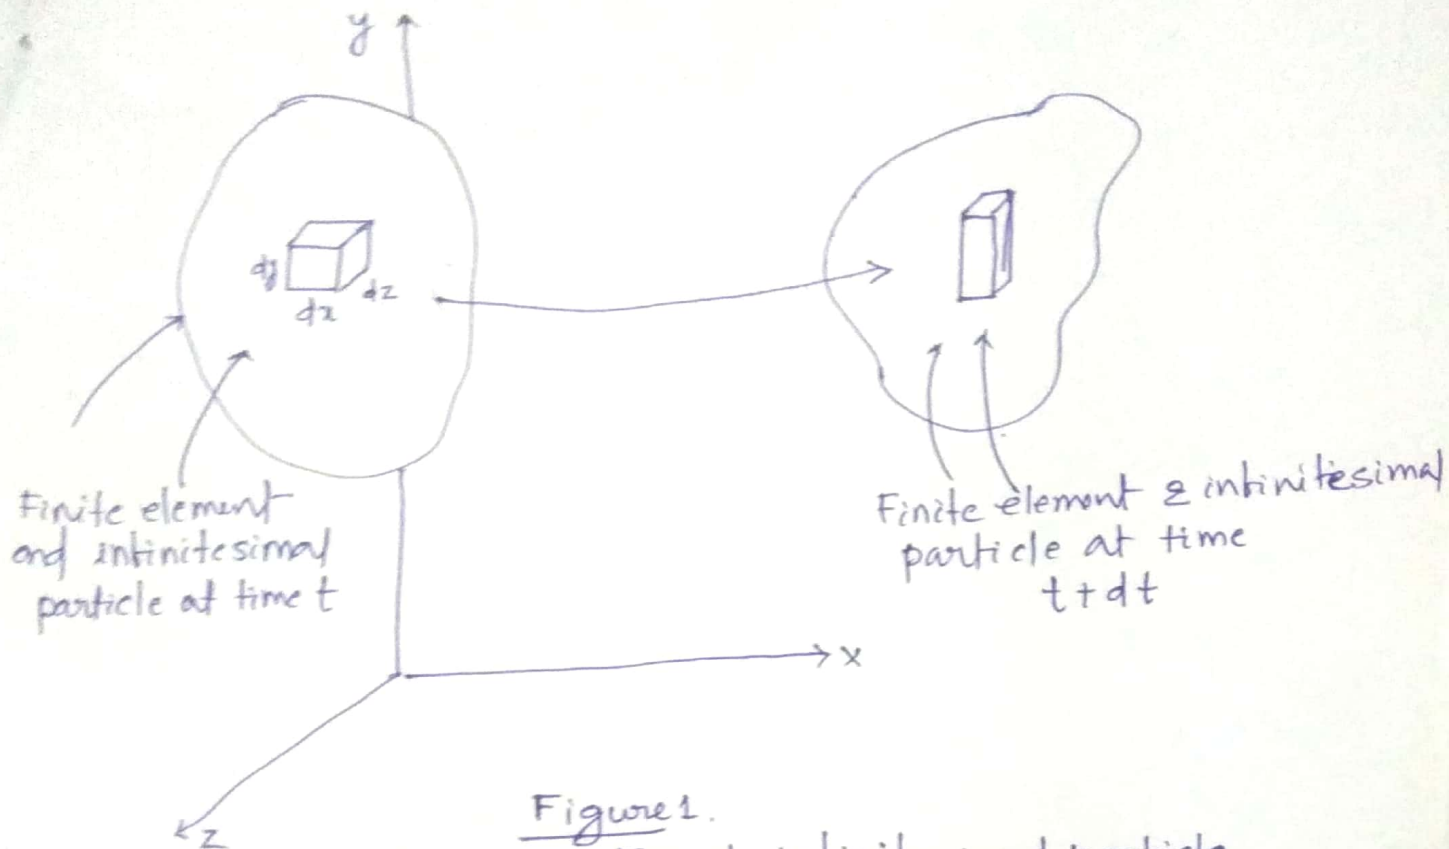 y
dy
dx
dz
Finite element
and infinitesimal
particle at time t
Finite element & infinitesimal
particle at time
t+dt
x
z
Figure 1.
particle